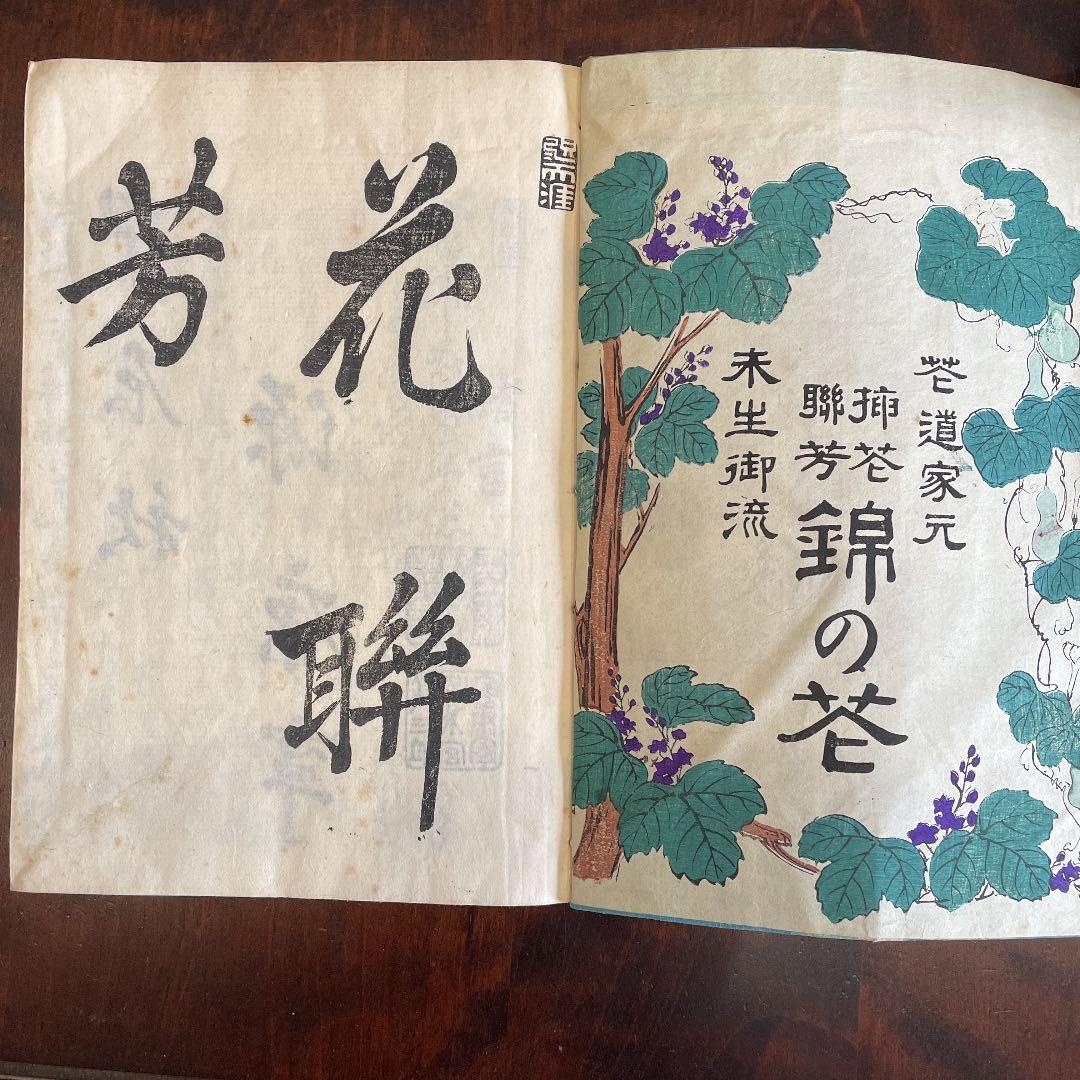 花道家元
挿花
聯芳
錦の花
未生御流
花聯
芳